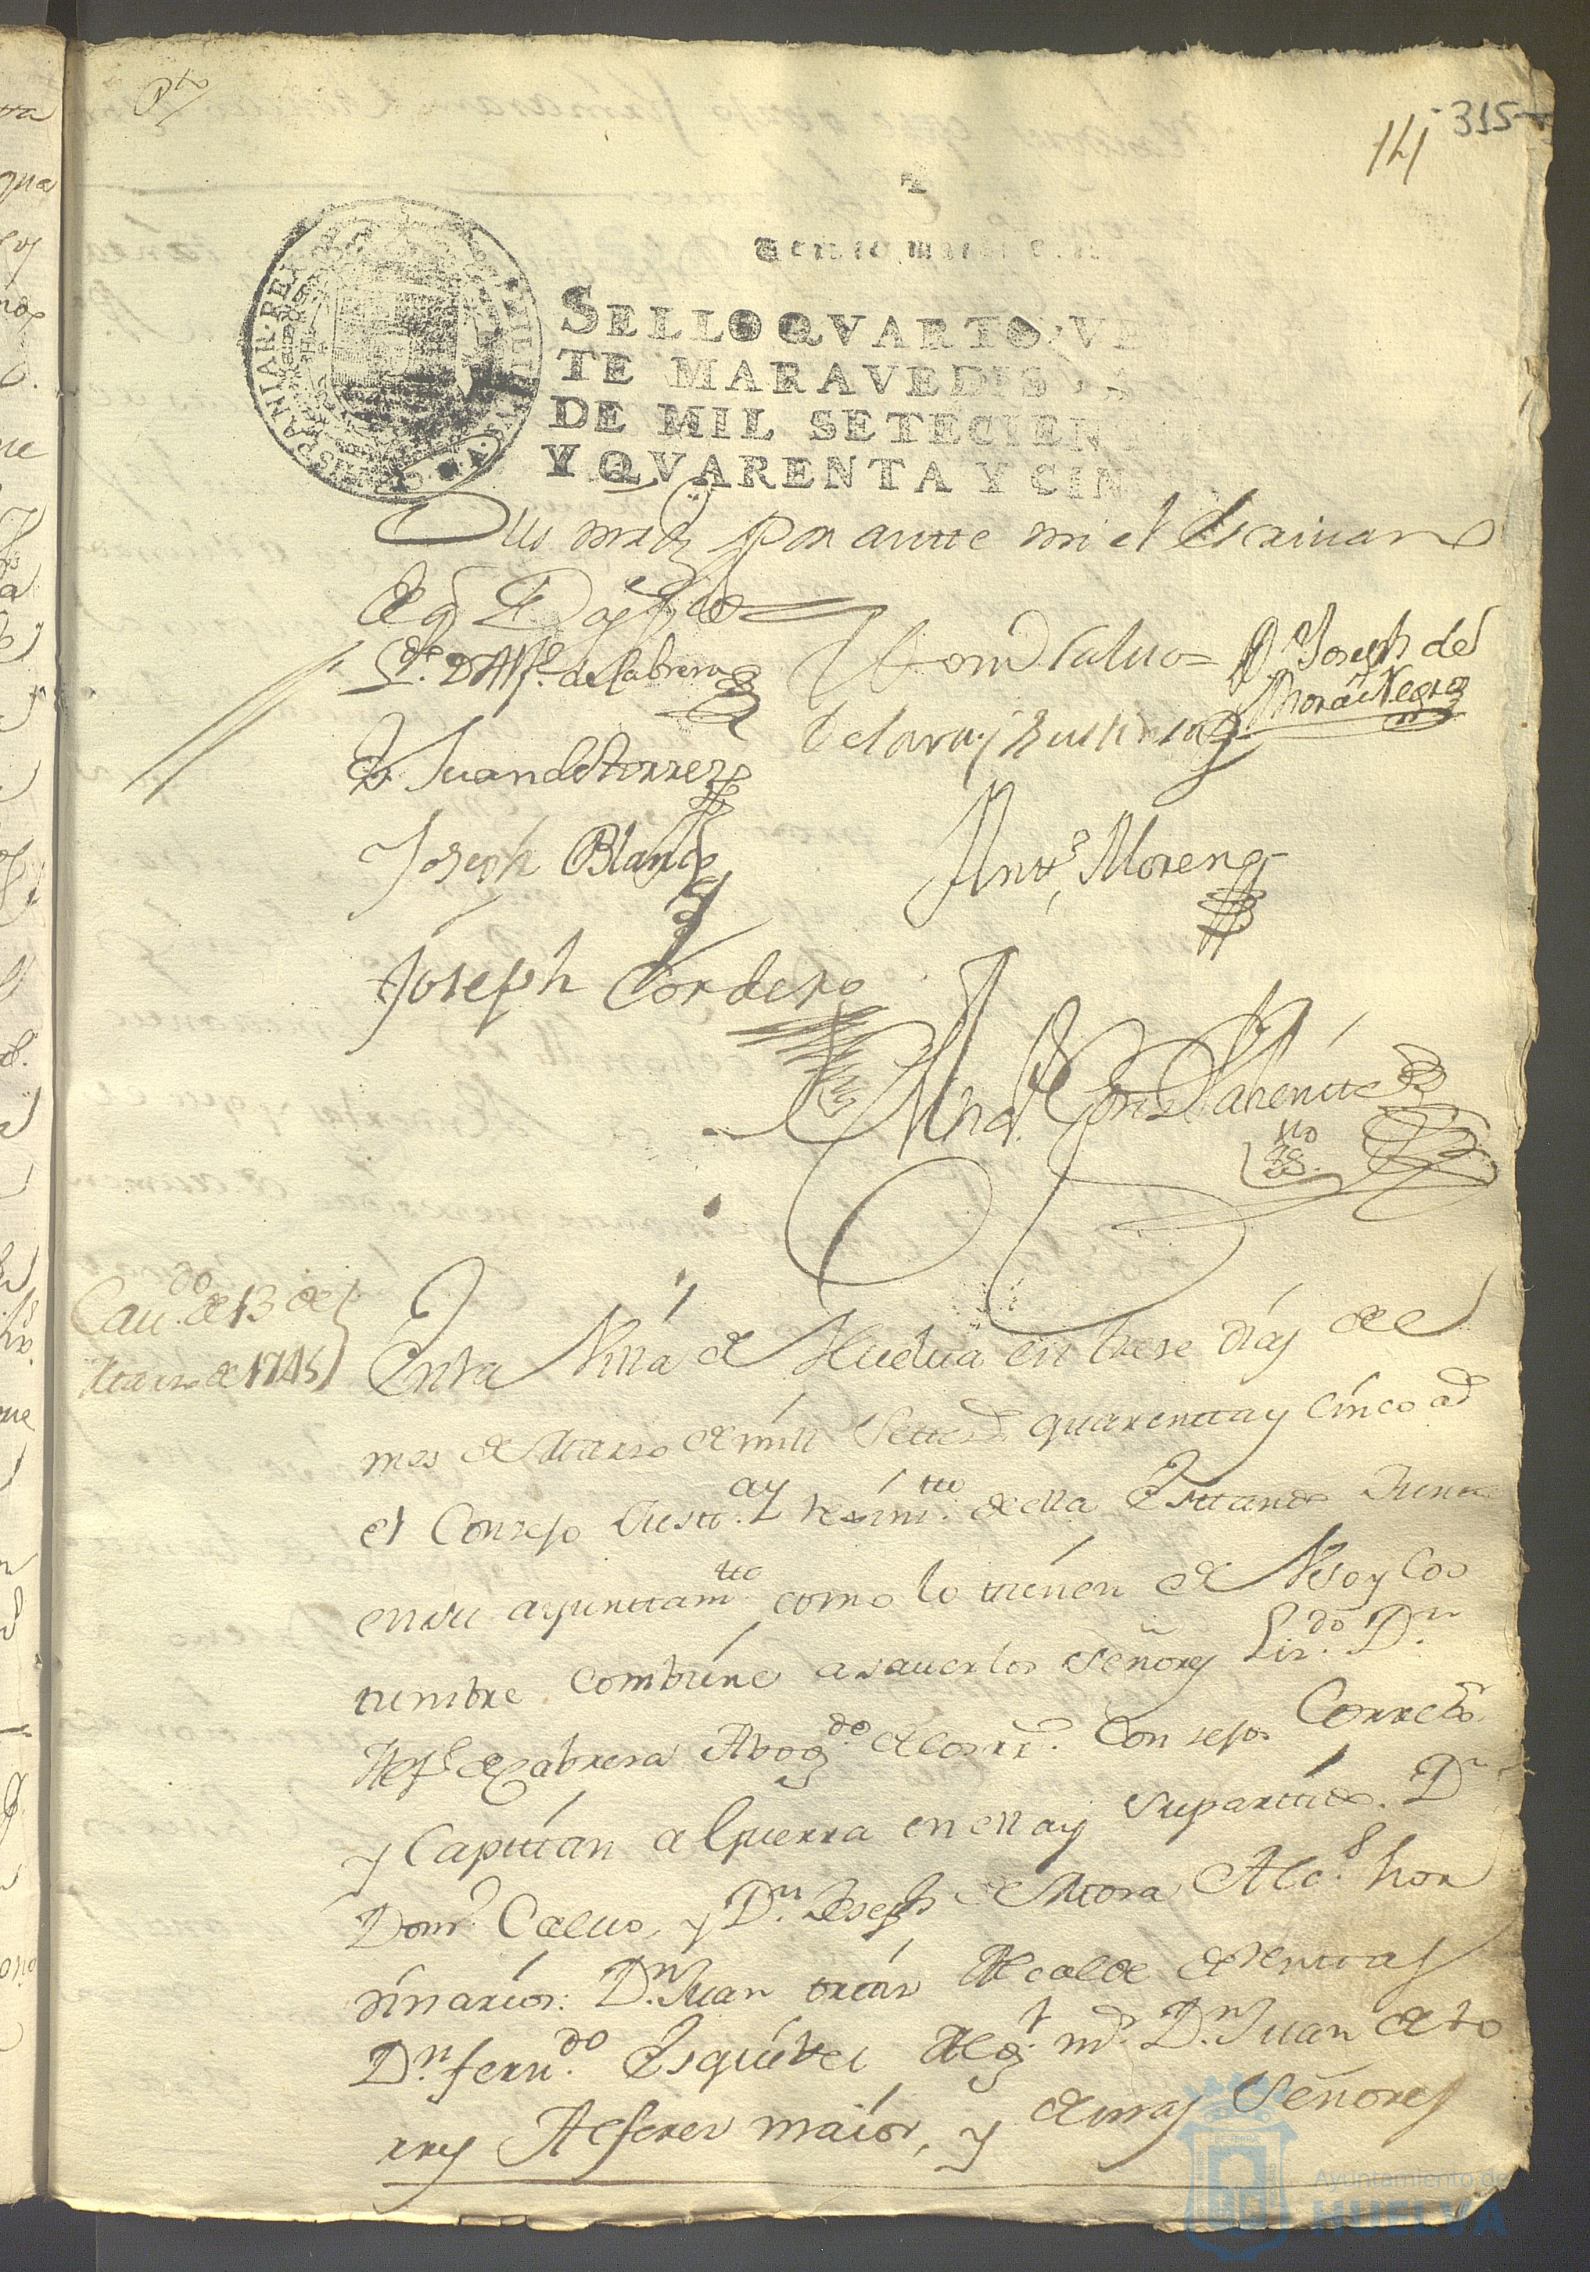 Pto
14 315
SELLO QVARTO, VE
TE MARAVEDIS, A
DE MIL SETECIEN
Y QVARENTA Y CIN
Sus mrds por antte mi el Escrivano
de q. Doy fee
Ldo. D. Alfo. de Cabrera
Dom.o Calvo
Dn. Joseph de
Mora Negro
D. Juan de torres
Joseph Blanco
Antto. Moreno
Joseph Cordero
Cavdo. de 13 de
Marzo de 1745
En la Villa de Huelva en trese dias de el
mes de Marzo de mill Settesd. quarentta y cinco ad
el Consejo Justta. y rexim.tto de ella Esttando Juntto
en su ayunttam.tto como lo tienen de Vso y Cos
tumbre combiene a saver los Señores Lis.do Dn.
Alfo. de Cabrera Abog.do de los rr.s Consejos Corre.or
y Capittan a Guerra en ella y su parttido. Dn.
Domo. Calvo, y Dn. Joseph de Mora Alc.s hor
dinarios: Dn. Juan Alcalde de
Dn. fern.do Esquivel Alg.l mr. Dn. Juan de to
rres Alferes maior, y demas Señores
Ayuntamiento de
HUELVA